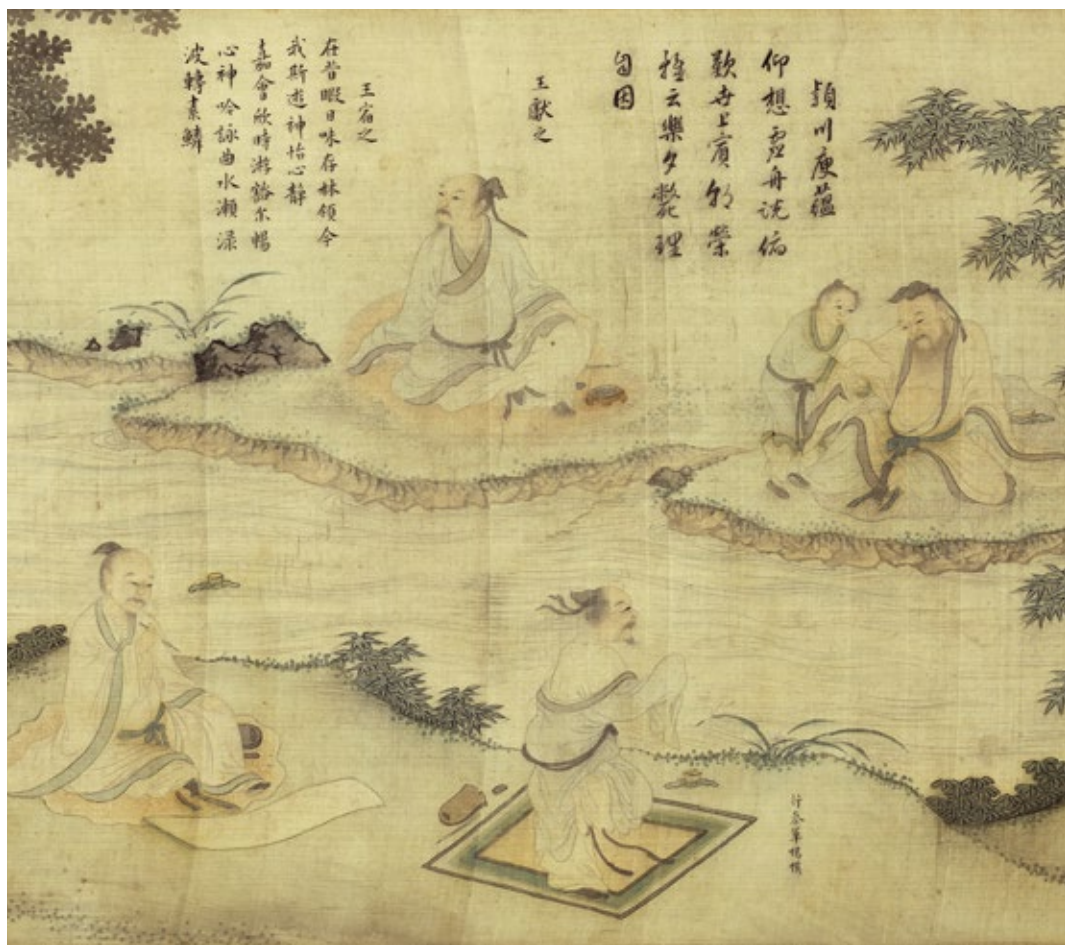 潁川庾蘊
仰想虛舟說俯
歎世上賓朝榮
雖云樂夕斃理
自因
王獻之
王宿之
在昔暇日味存林領今
我斯遊神怡心靜
嘉會欣時游豁尒暢
心神吟詠曲水瀨渌
波轉素鱗
行參軍楊模